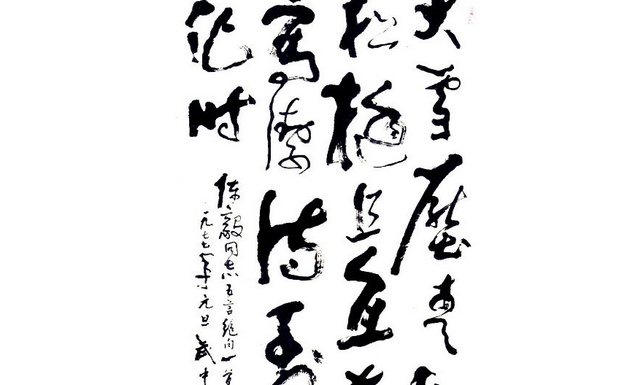 大雪壓青
松挺且直
高潔待到
化时
陈毅同志五言绝句一首
一九七 元旦 武中